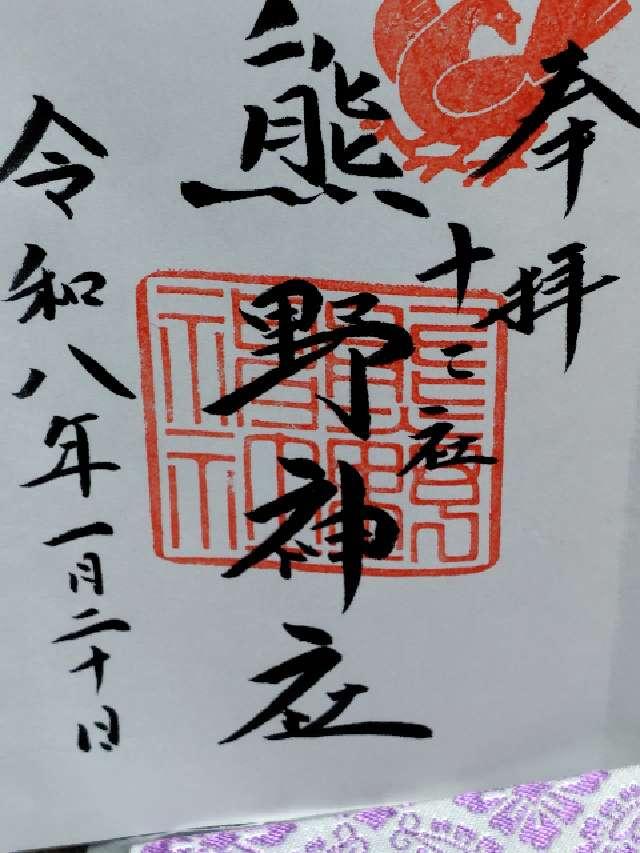 奉拝
十二社
熊野神社
令和八年一月二十日